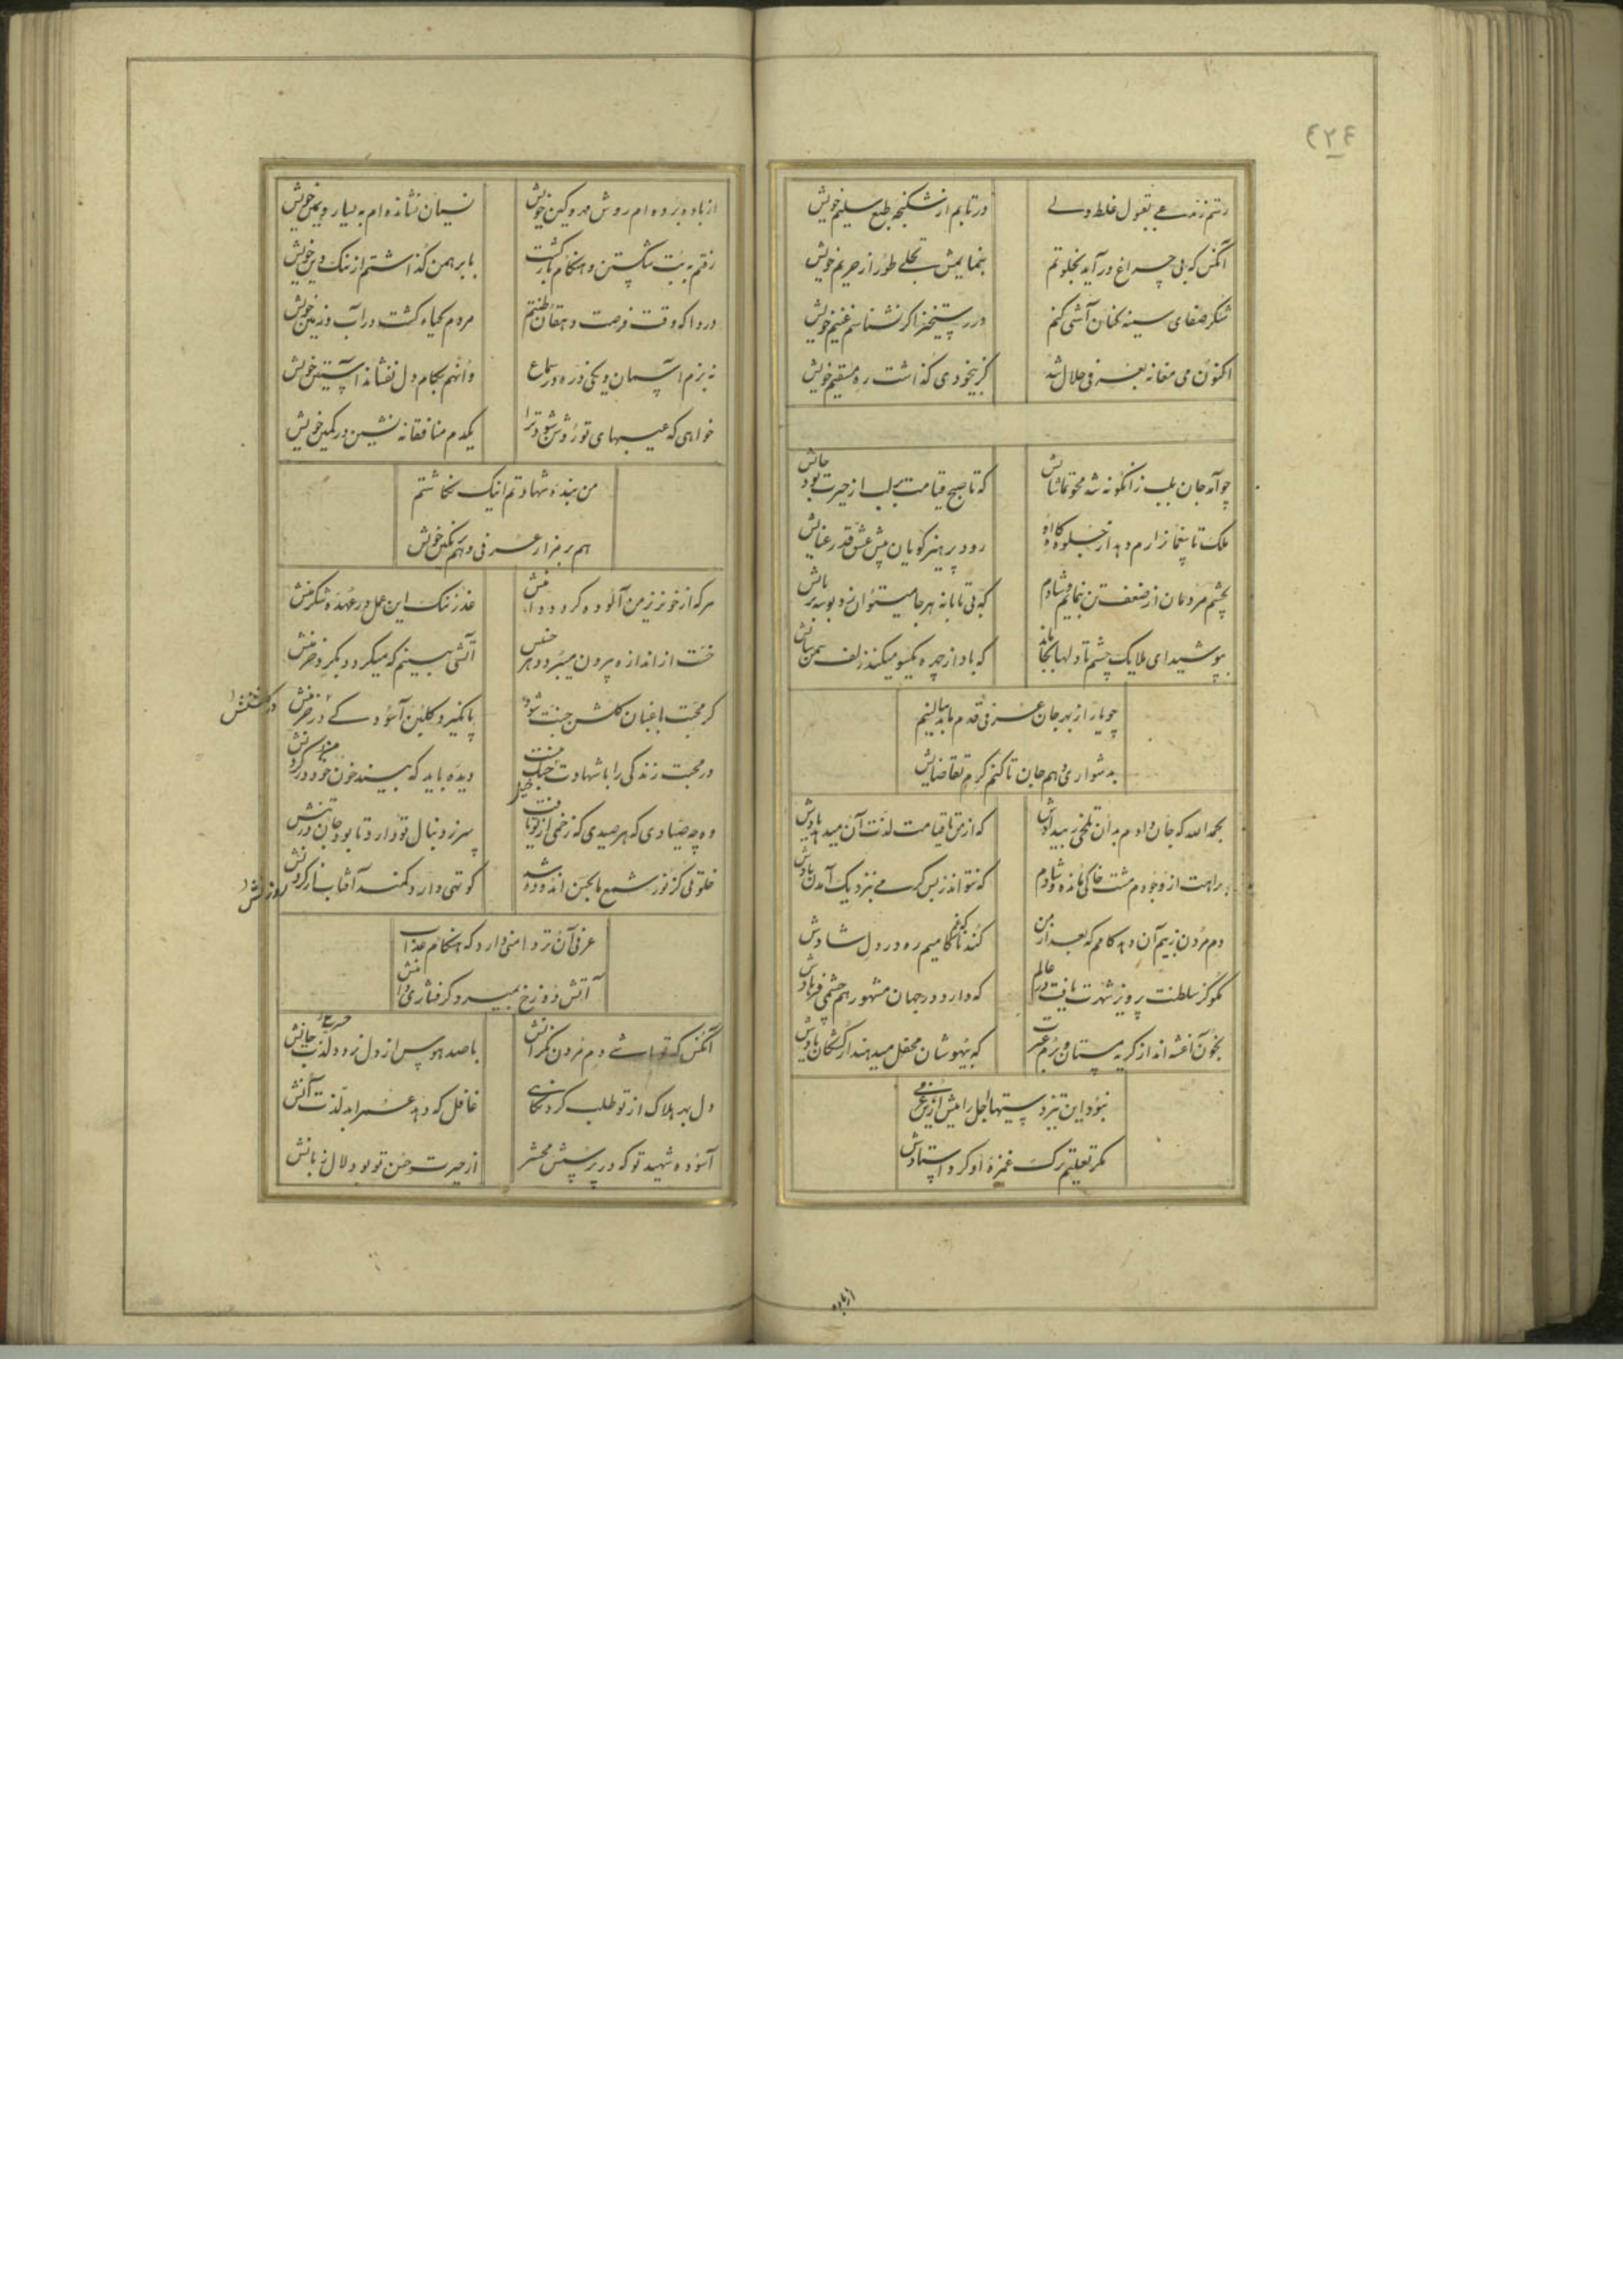 ٤٢٤
رستم ز مدعی بقبول غلط ولی
در تابم از شکنجهٔ طبع سلیم خویش
آنکس که بی چراغ در آید بخلوتم
بنمایمش تجلی طور از حریم خویش
شکر صفای سینه بخنان آشتی کنم
در رستخیز اگر نشناسم غنیم خویش
اکنون می مغانه بعرفی حلال شد
کز بیخودی گذاشت ره مستقیم خویش
چو آمد جان بلب زانگونه شد محو تماشایش
که تا صبح قیامت بر لب از حیرت بود جایش
ملک تا پیغما زارم دهد از جلوه گاه او
رود پرهیز گویان پیش پیش عشق قد رعنایش
بچشم مردمان از ضعف تن ننمایم و شادم
که بی تابانه هر جا میتوان زد بوسه بر پایش
بپوشید ای ملایک چشم تا دلها بجا ماند
که باد از چهره یکسو میکند زلف سمن سایش
چو یار از بهر جان عرفی قدم ماند ببالینم
بدشواری دهم جان تا کنم گرم تقاضایش
بحمد الله که جان دادم بدان تلخی ز بیدادش
که از من تا قیامت لذت آن میدهد یادش
براهت از وجودم مشت خاکی مانده و شادم
که نتواند ز بس گرمی بنزدیک آمدن بادش
دم مردن ز بیم آن دهد کامم که بعد از من
کند ناکامیم ره در دل شادش
مگو کز سلطنت پرویز شهرت یافت در عالم
که دارد در جهان مشهور هم چشمی فرهادش
بخون آغشته‌اند از گریه مستان بزم عشرت
که بیهوشان محفل میدهند از کشتگان یادش
نبود این تیز دستیها اجل را پیش ازین عرفی
مگر تعلیم ترک غمزهٔ او کرد استادش
از باده
از باده برده‌ام روش مهر و کین خویش
نسیان نشانده‌ام به یسار و یمین خویش
رفتم به بت شکستن و هنگام بازگشت
با برهمن گذاشتم از ننگ دین خویش
دردا که وقت فرصت دهقان طینتم
مردم گیاه کشت در آب و زمین خویش
نه بزم آسمان و یکی ذره در سماع
وانهم بکام دل نفشاند آستین خویش
خواهی که عیبهای تو روشن شود ترا
یکدم منافقانه نشین در کمین خویش
من بنده شهادتم اینک نگاشتم
هم بر مزار عرفی و هم بر نگین خویش
هر که از خونریز من آلوده گردد دامنش
عذر ننگ این عمل در عهدهٔ شکر منش
حسن از اندازه بیرون میبرد در هر جنس
آتشی بینم که میگردد بگرد خرمنش
گر محبت باغبان گلشن جنت شود
پا نگیرد گلبن آسودگی در خرمنش
در گلشنش
در محبت زندگی را با شهادت جنگ نیست
دیده باید که بیند خون خود در گردنش
وه چه صیادی که هر صیدی که زخمی از تو یافت
سر ز دنبال تو دارد تا بود جان در تنش
خلوتی کز نور شمع ما بجین اندود شد
کوتهی دارد کمند آفتاب از گردنش
روزنش
عرفی آن تر دامنی دارد که هنگام عذاب
آتش دوزخ بمیرد گر فشاری دامنش
آنکس که تو باشی دم مردن نگرانش
با صد هوس از دل نرود لذت جانش
حسرت
دل بهر هلاک از تو طلب کرد نگاهی
غافل که دهد عمر ابد لذت آنش
آسوده شهید تو که در پرسش محشر
از حیرت حسن تو بود لال زبانش